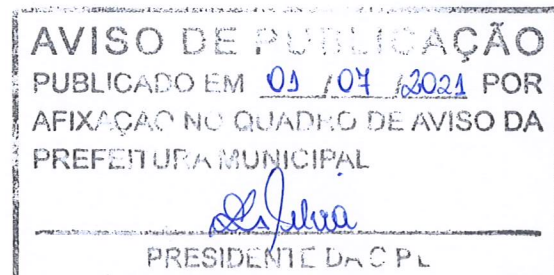 AVISO DE PUBLICAÇÃO
PUBLICADO EM 01 / 07 / 2021 POR
AFIXAÇÃO NO QUADRO DE AVISO DA
PREFEITURA MUNICIPAL
PRESIDENTE DA C P L